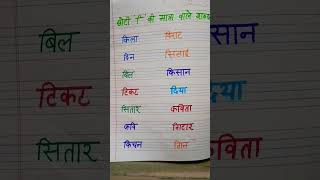 छोटी "ि" की मात्रा वाले शब्द
किला विराट
दिन सिलाई
बिल किसान
टिकट दिया
सितार कविता
कवि गिटार
किचन गिन
बिल
टिकट
सितार
सान
या
कविता